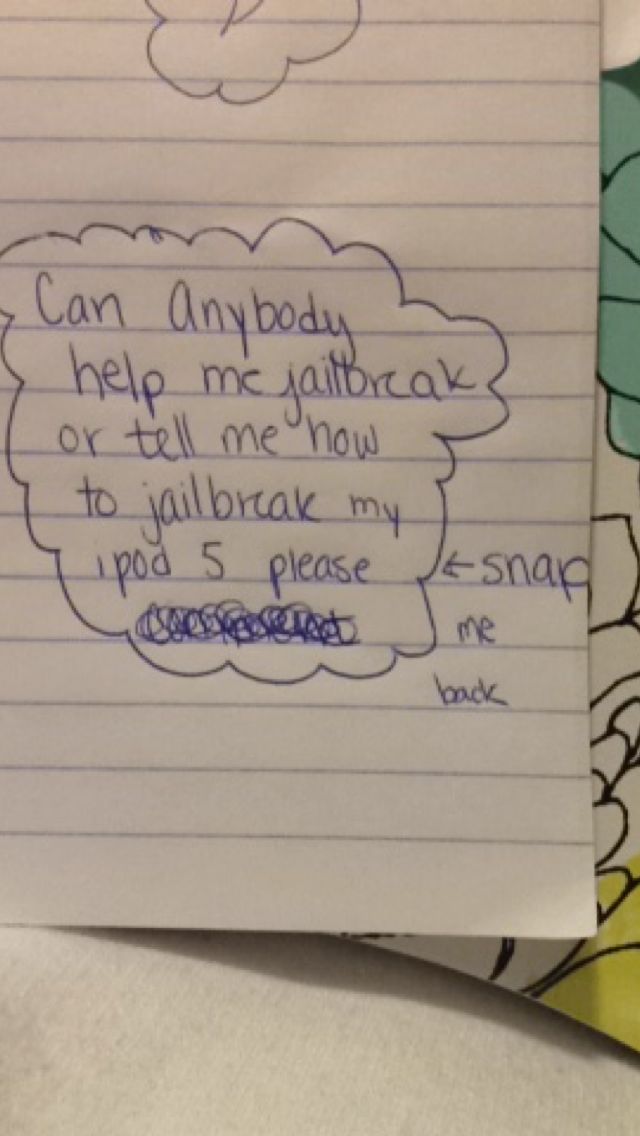 Can anybody
help me jailbreak
or tell me how
to jailbreak my
ipod 5 please
← snap
me
back